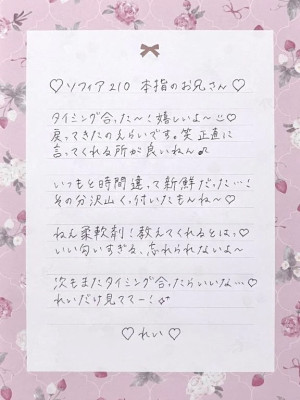 ♡ソフィア210 本指のお兄さん♡
タイミング合った〜！嬉しいよ〜☺♡
戻ってきたのえらいです。笑 正直に
言ってくれる所が良いねん♪
いつもと時間違って新鮮だった…！
その分沢山くっ付いたもんね〜♡
ねえ柔軟剤！教えてくれるとはっ♡
いい匂いすぎる、忘れられないよ〜
次もまたタイミング合ったらいいな…♡
れいだけ見ててー！
♡れい♡